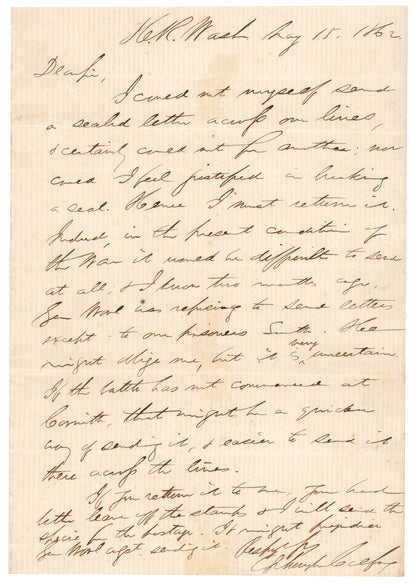 H.R. Wash May 15. 1862.
Dear Sir,
I could not myself send
a sealed letter across our lines,
& certainly could not for another; nor
could I feel justified in breaking
a seal. Hence I must return it.
Indeed, in the present condition of
the War it would be difficult to send
at all, & I know two months ago,
Gen Wool was refusing to send letters
except to our prisoners South. He
might oblige me, but it is very uncertain.
If the battle has not commenced at
Corinth, that might be a quicker
way of sending it, & easier to send it
there across the lines.
If you return it to me, you had
better leave off the stamps & I will send the
specie for the postage. It might prejudice
Gen Wool agst. sending it.
Respy
Schuyler Colfax